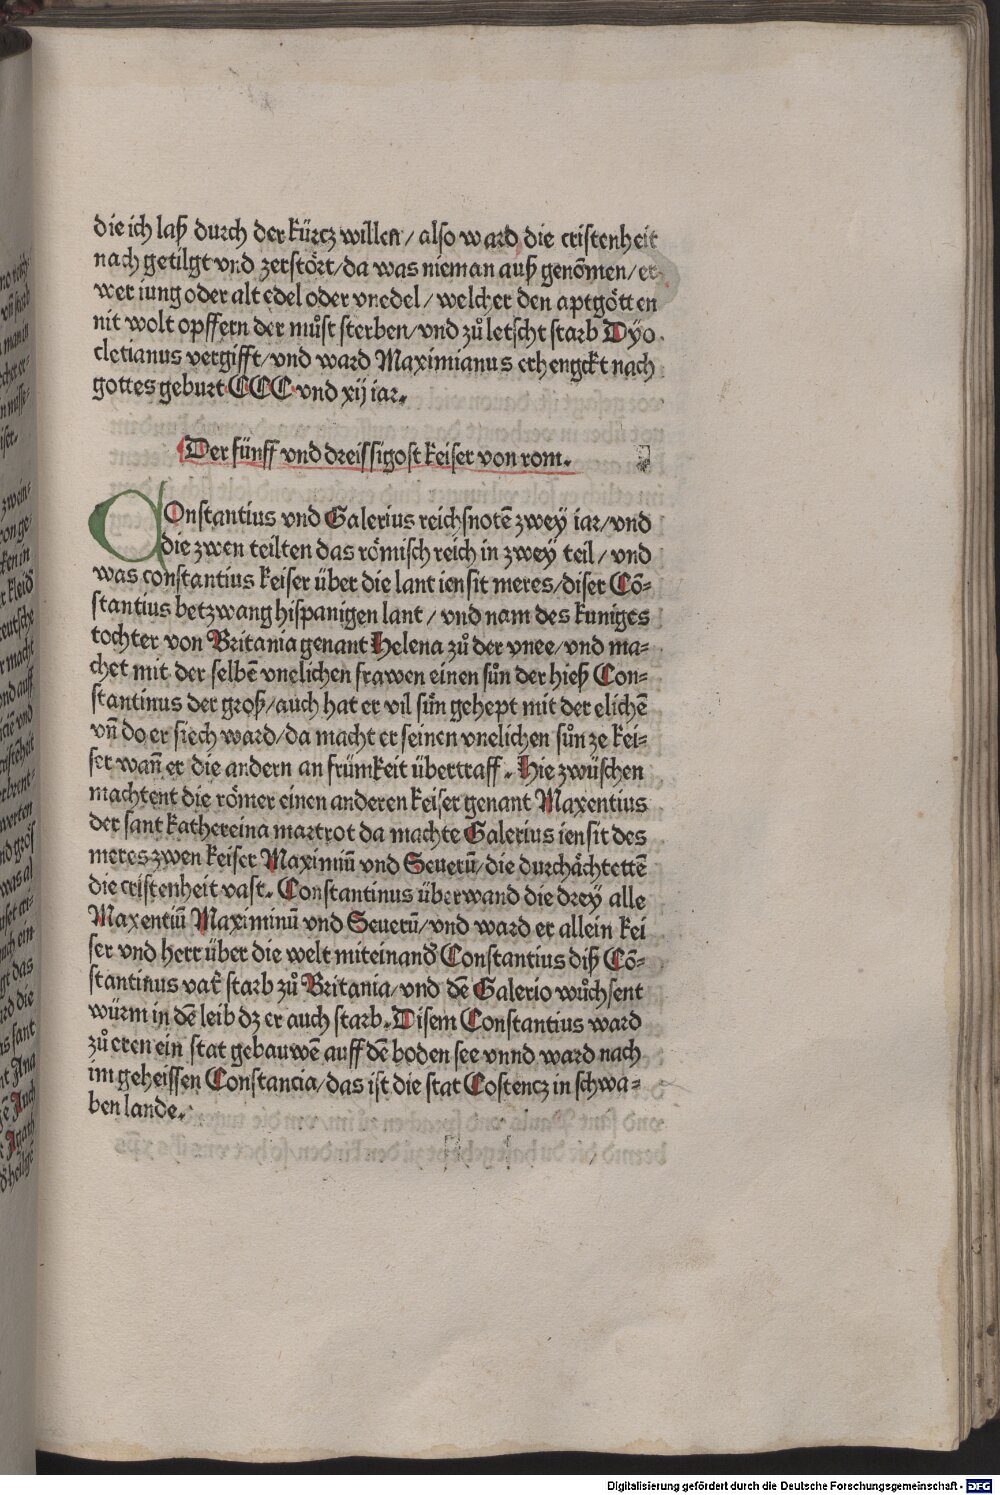 die ich laß durch der kürcz willen/ also ward die cristenheit
nach getilgt vnd zerstört/ da was nieman auß genōmen/ er
wer iung oder alt edel oder vnedel/ welcher den aptgötten
nit wolt opffern der můst sterben/ vnd zů letscht starb Dyo
cletianus vergifft/ vnd ward Maximianus erhengckt nach
gottes geburt CCC vnd xij iar.
Der fünff vnd dreissigost keiser von rom.
COnstantius vnd Galerius reichsnotē zwey iar/ vnd
die zwen teilten das römisch reich in zwey teil/ vnd
was constantius keiser über die lant iensit meres/ diser Cō-
stantius betzwang hispanigen lant/ vnd nam des kuniges
tochter von Britania genant Helena zů der vnee/ vnd ma-
chet mit der selbē vnelichen frawen einen sůn der hieß Con-
stantinus der groß/ auch hat er vil sün gehept mit der elichē
vñ do er siech ward/ da macht er seinen vnelichen sůn ze kei-
ser wañ er die andern an frümkeit übertraff. Hie zwüschen
machtent die römer einen anderen keiser genant Maxentius
der sant kathereina martrot da machte Galerius iensit des
meres zwen keiser Maximiū vnd Seuerū/ die durchächtettē
die cristenheit vast. Constantinus überwand die drey alle
Maxentiū Maximinū vnd Seuerū/ vnd ward er allein kei
ser vnd herr über die welt miteinand̕ Constantius diß Cō-
stantinus vat̕ starb zů Britania/ vnd dē Galerio wůchsent
würm in dē leib dz er auch starb. Disem Constantius ward
zů eren ein stat gebauwē auff dē boden see vnnd ward nach
im geheissen Constancia/ das ist die stat Costencz in schwa-
ben lande.
Digitalisierung gefördert durch die Deutsche Forschungsgemeinschaft - DFG